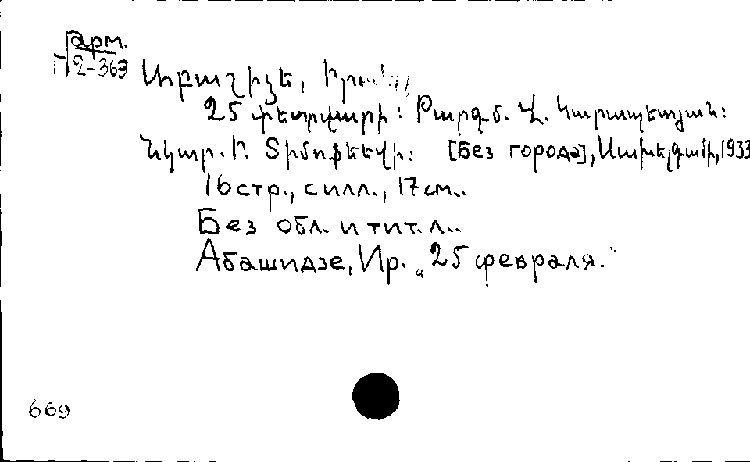 арм.
2-363
Աբաշիձե,
25 փետրվարի: Բարգմ. Հ. Կարապետյան:
Նկար. Ի. Տիմոֆեևի: [Без города], 1933
16 стр., силл., 17 см..
Без обл. и тит. л..
Абашидзе, Ир. „25 февраля."
669